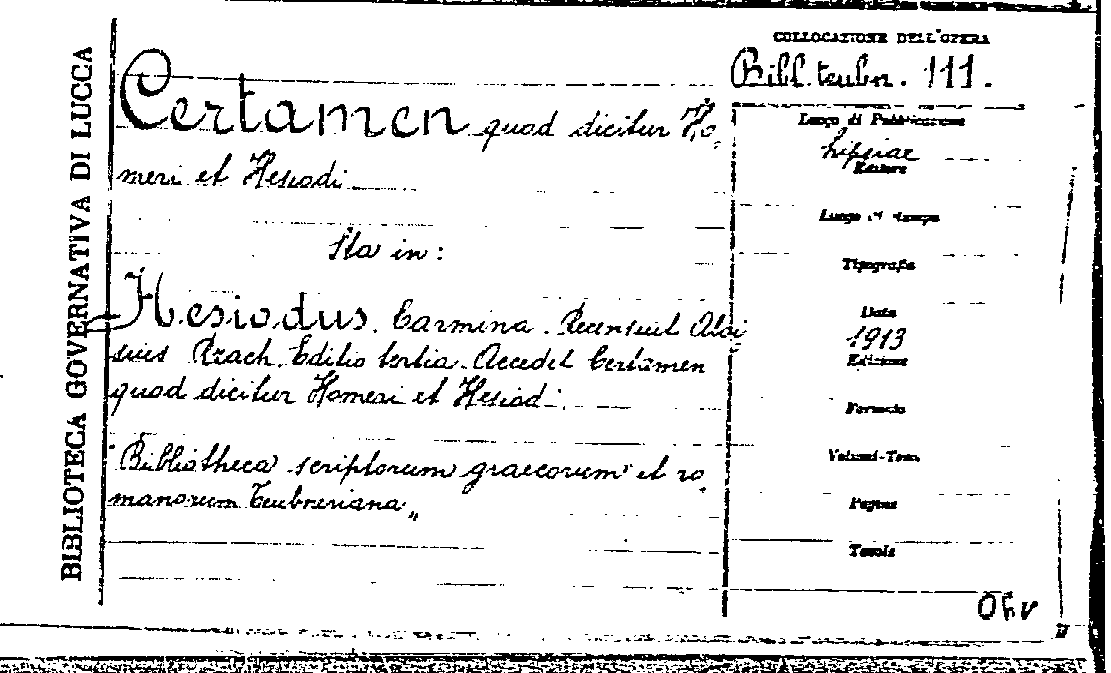 BIBLIOTECA GOVERNATIVA DI LUCCA
COLLOCAZIONE DELL'OPERA
Bibl. teubn. 111.
Certamen quod dicitur Ho
meri et Hesiodi
Sta in:
Hesiodus. Carmina. Recensuit Aloi
sius Rzach. Editio tertia. Accedit Certamen
quod dicitur Homeri et Hesiodi.
"Bibliotheca scriptorum graecorum et ro
manorum Teubneriana„
Luogo di Pubblicazione
Lipsiae
Editore
Luogo di stampa
Tipografia
Data
1913
Edizione
Formato
Volumi-Tomi
Pagine
Tavole